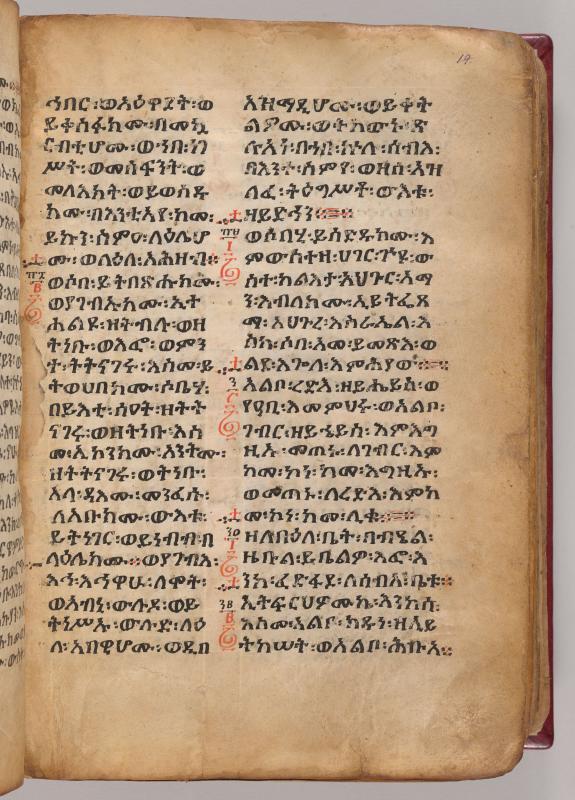 ይቀስፋክሙ፡በመኳ
ርብቲሆሙ፡ወኀበ፡ነገ
ሥት፡ወመሳፍንት፡ወ
መላእክት፡ወይወስዱ
ክሙ፡በእንቲአየ፡ከመ፡
ይኩን፡ስምዐ፡ለዕሌሆ
ሙ፡ወለዕለ፡አሕዛብ።
ወሶበ፡ይትበጽሑክሙ፡
ወያገብኡክሙ፡ኢት
ሐልዩ፡ዘትብሉ፡ወዘ
ትነቡ፡ወእፎ፡ወምን
ተ፡ትትናገሩ፡እስመ፡ይ
ትወሀበክሙ፡ሶቤሃ፡
በይእቲ፡ሰዓት፡ዘትት
ናገሩ፡ወዘትነቡ፡እስ
መ፡ኢኮንክሙ፡አንትሙ፡
ዘትትናገሩ፡ወትነቡ፡
አላ፡ዳእሙ፡መንፈሱ፡
ለአቡክሙ፡ውእቱ፡
ይትነገር፡ወይነብብ፡በ
ላዕሌክሙ።ወያገብእ፡
እኅ፡እኅዋሁ፡ለሞት፡
ወአብኒ፡ውሉደ፡ወይ
ትነሥኡ፡ውሉድ፡ላዕ
ለ፡አበዊሆሙ፡ወዲበ
አዝማዲሆሙ፡ወይቀት
ልዎሙ፡ወትከውኑ፡ጽ
ሉአነ፡በኀበ፡ኵሉ፡ሰብእ፡
በእንተ፡ስምየ፡ወዘሰ፡አዝ
ለፈ፡ትዕግሥቶ፡ውእቱ፡
ዘይድኅን።
ወሶበሂ፡ይሰድዱክሙ፡እ
ምውስተዛ፡ሀገር፡ጕዩ፡ው
ስተ፡ካልእታ፡አህጉር፡እማ
ን፡እብለክሙ፡ኢይትፌጸ
ማ፡አህጉረ፡እስራኤል፡እ
ስከ፡ሶበ፡እመ፡ይመጽእ፡ወ
ልደ፡እጓለ፡እምሕያው።
አልቦ፡ረድእ፡ዘይሔይስ፡ወ
የዓቢ፡እመምህሩ፡ወአልቦ፡
ገብር፡ዘይሔይስ፡እምእግ
ዚኡ፡መጠኑ፡ለገብር፡እም
ከመ፡ኮነ፡ከመ፡እግዚኡ፡
ወመጠኑ፡ለረድእ፡እምከ
መ፡ኮነ፡ከመ፡ሊቁ።
ዘለበዕለ፡ቤት፡ብዔል፡
ዜቡል፡ይቤልዎ፡እፎ፡እ
ንከ፡ፈድፋደ፡ለሰብአ፡ቤቱ።
ኢትፍርህዎሙኬ፡እንከሰ፡
እስመ፡አልቦ፡ክዱን፡ዘኢይ
ትከሠት፡ወአልቦ፡ኅቡእ።